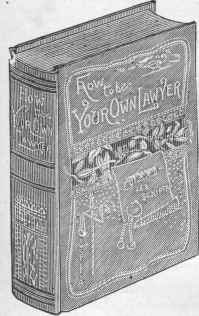 HOW
TO BE
YOUR OWN
LAWYER
How
to be
YOUR OWN LAWYER
LEX
SCRIPTA